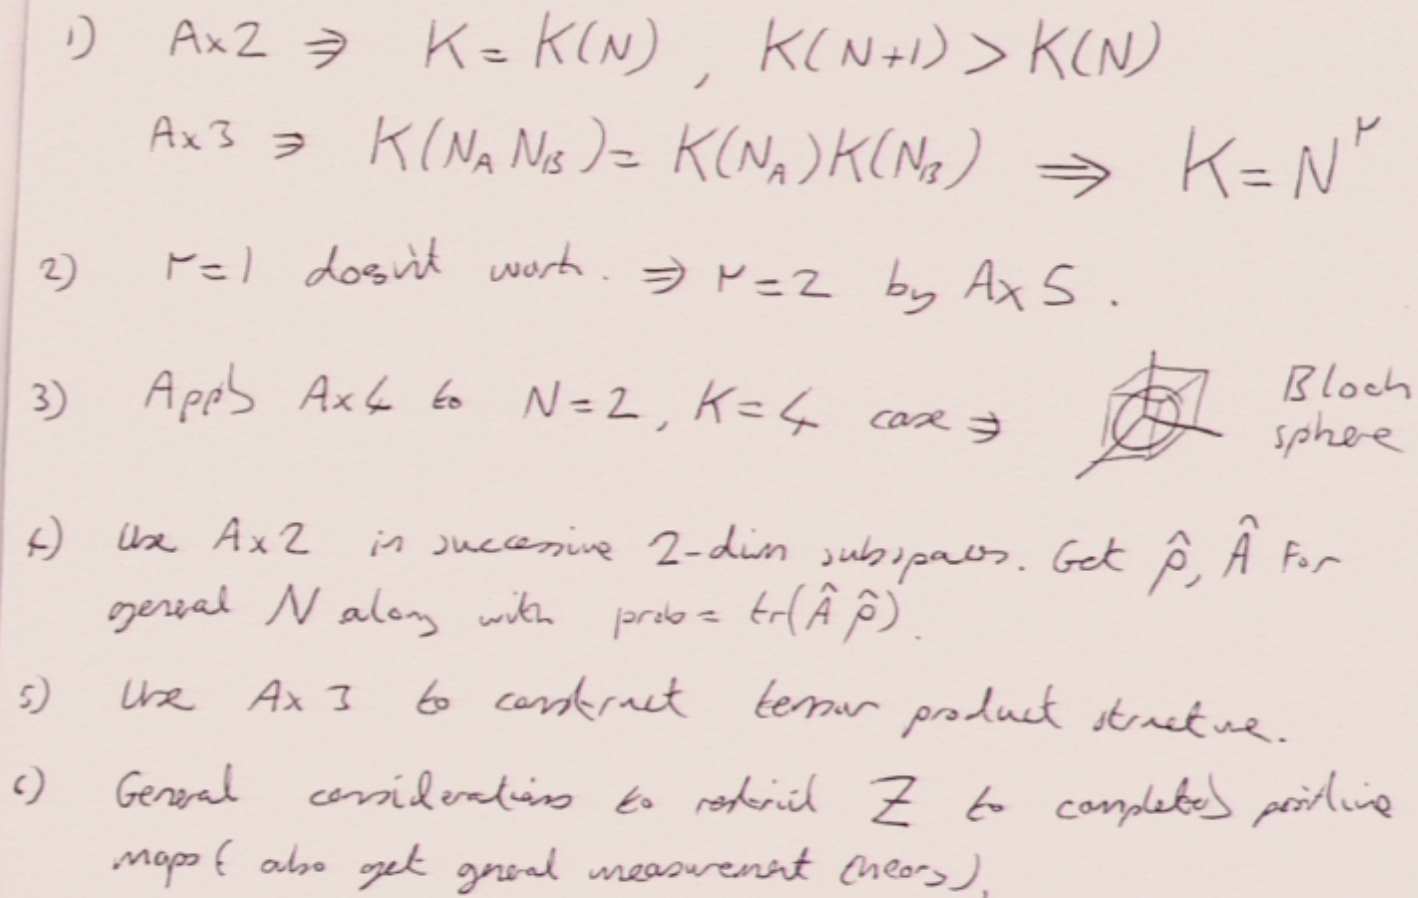 1) Ax2 ⇒ K = K(N), K(N+1) > K(N)
Ax3 ⇒ K(N_A N_B) = K(N_A)K(N_B) ⟹ K = N^r
2) r=1 doesn't work. ⇒ r=2 by Ax 5.
3) Apply Ax4 to N=2, K=4 case ⇒ Bloch
sphere
4) Use Ax2 in successive 2-dim subspaces. Get ρ̂, Â For
general N along with prob = tr(Â ρ̂).
5) Use Ax 3 to construct tensor product structure.
6) General considerations to restrict Z to completely positive
maps (also get general measurement theory).